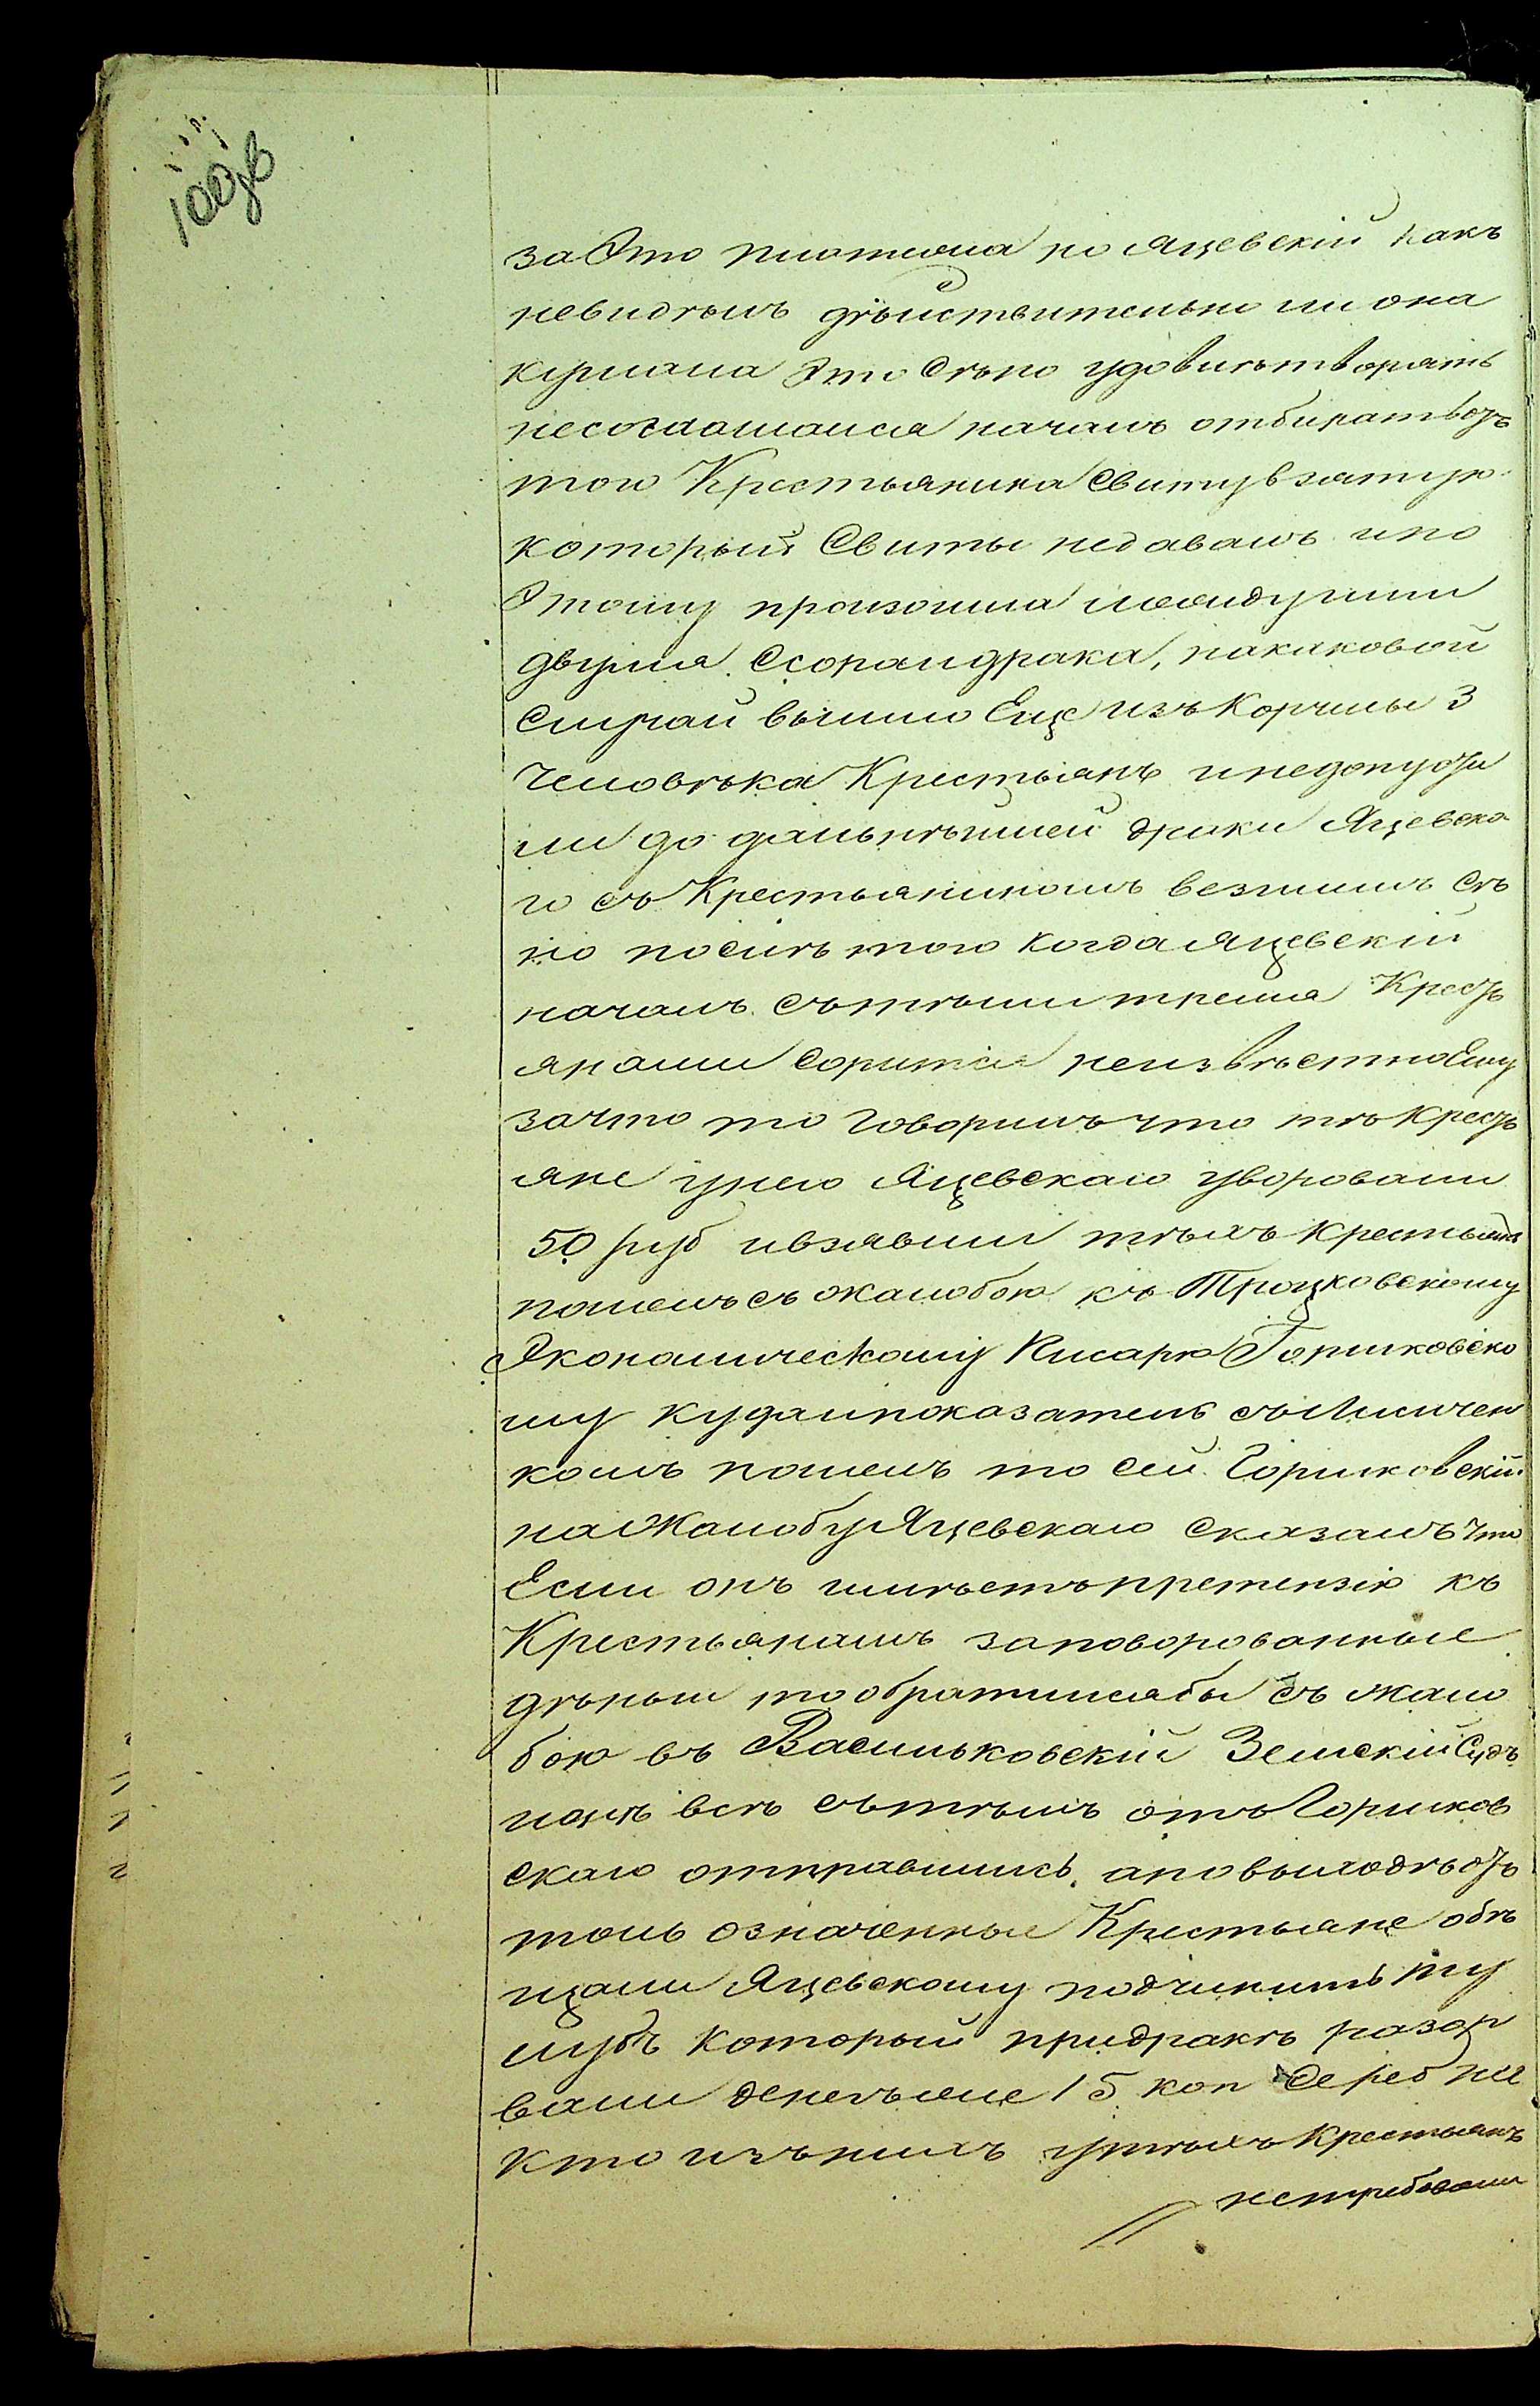 100дв
за Это плотила но Ящевскій какъ
невидѣлъ дѣйствительно ли она
купила Это Сѣно удовлѣтворять
несоглашался началъ отбирать отъ
того Крестьянина Свиту взятую
который Свиты недавалъ и по
Этому произошла междуими
двумя Ссора и драка, на каковой
Случай вышло Еще изъ Корчмы 3
Человѣка Крестьянъ и недопусти
ли до дальнѣйшей драки Ящевска
го съ Крестьяниномъ везшимъ Сѣ
но послѣ того когда Ящевскій
началъ Сътѣми тремя Кресть
янами Сорится неизвѣстно Ему
зачто то Говорилъ что тѣ Кресть
яне унего Ящевскаго уворовали
50 руб ивзявши тѣхъ Крестьянъ
пошелъ съ жалобою къ Троцковскому
Экономическому Писарю Горшковско
му куда и показатель съ Лисичен
комъ пошелъ то Сей Горшковскій
на Жалобу Ящевскаго Сказалъ что
Если онъ имѣетъ претензію къ
Крестьянамъ за поворованные
дѣньги то обратилсябы съ жало
бою въ Васильковскій Земскій Судъ
и они всѣ сътѣмъ отъ Горшков
скаго отправились, а по выходѣ от
толь означенные Крестьяне обѣ
щали Ящевскому подчинить ту
лубъ который при дракѣ разор
вали денегъже 15 коп Сереб не
кто изънихъ у тѣхъ Крестьянъ
нетребовали